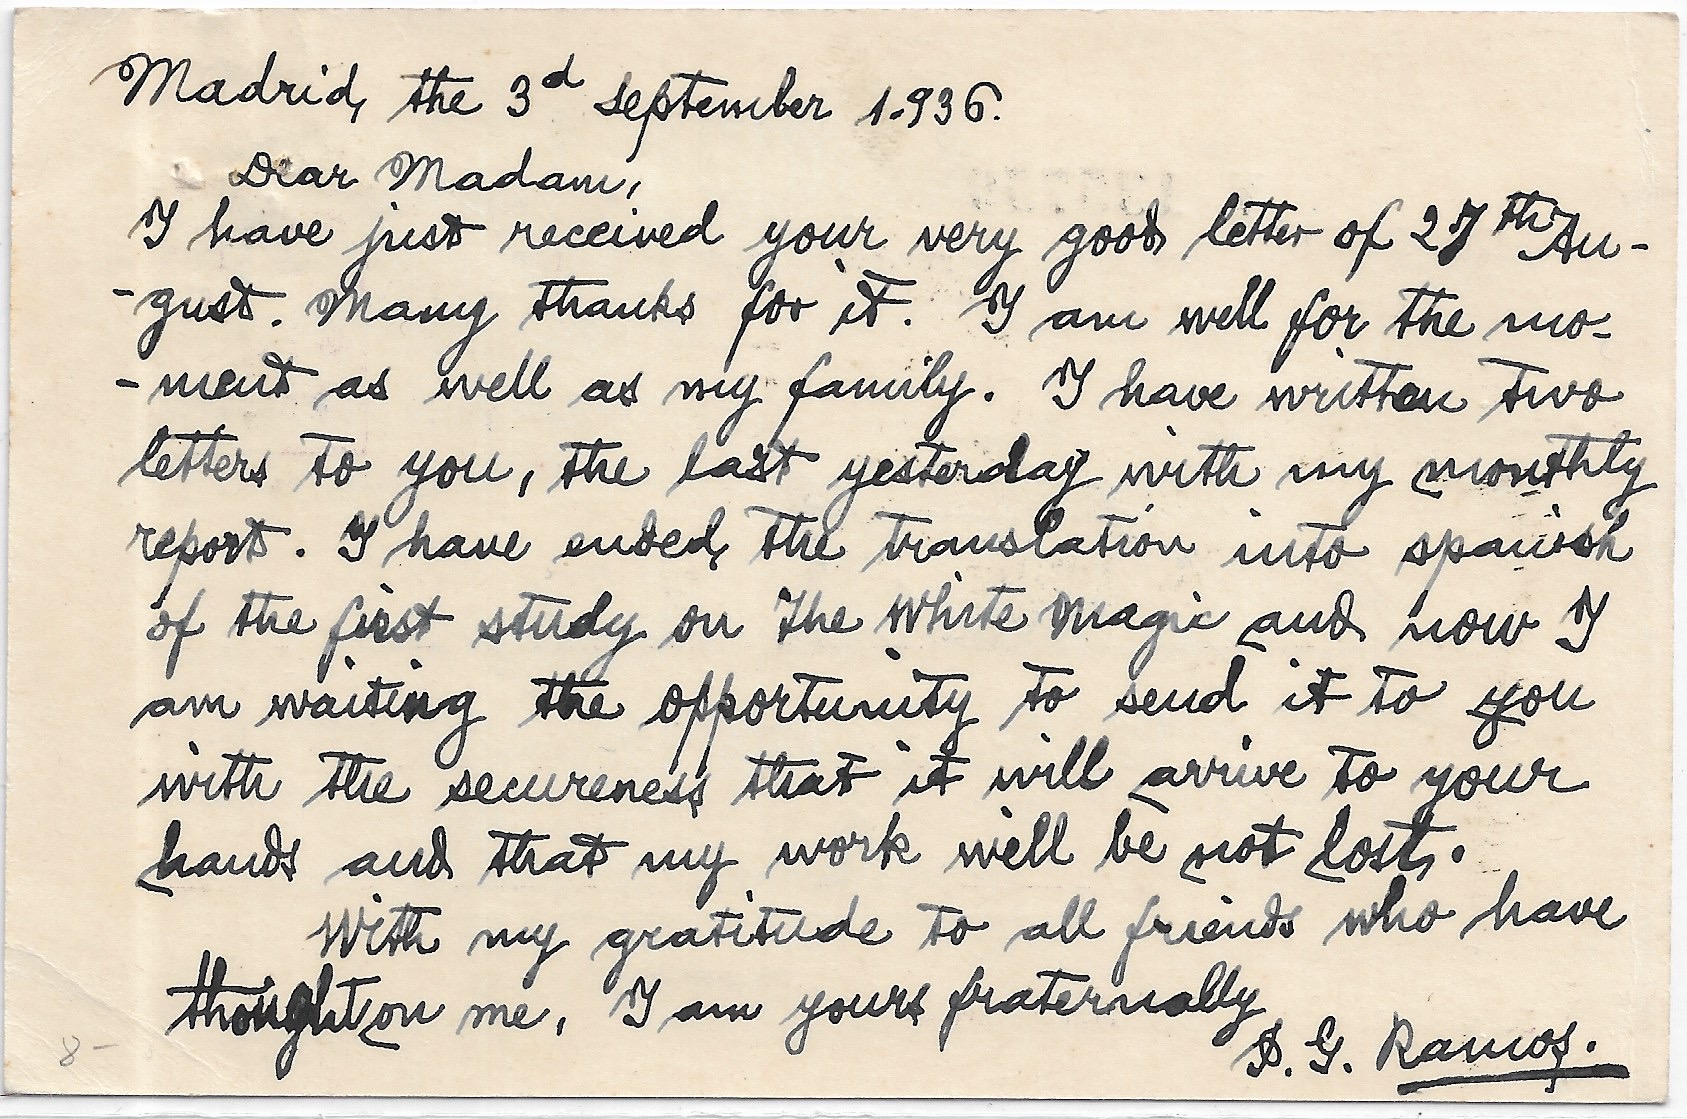 Madrid, the 3d september 1.936.
Dear Madam,
I have just received your very good letter of 27th Au-
-gust. Many thanks for it. I am well for the mo-
-ment as well as my family. I have written two
letters to you, the last yesterday with my monthly
report. I have ended the translation into spanish
of the first study on The White Magic and now I
am waiting the opportunity to send it to you
with the secureness that it will arrive to your
hands and that my work well be not lost.
With my gratitude to all friends who have
thought on me, I am yours fraternally
G. Ramos.
8-